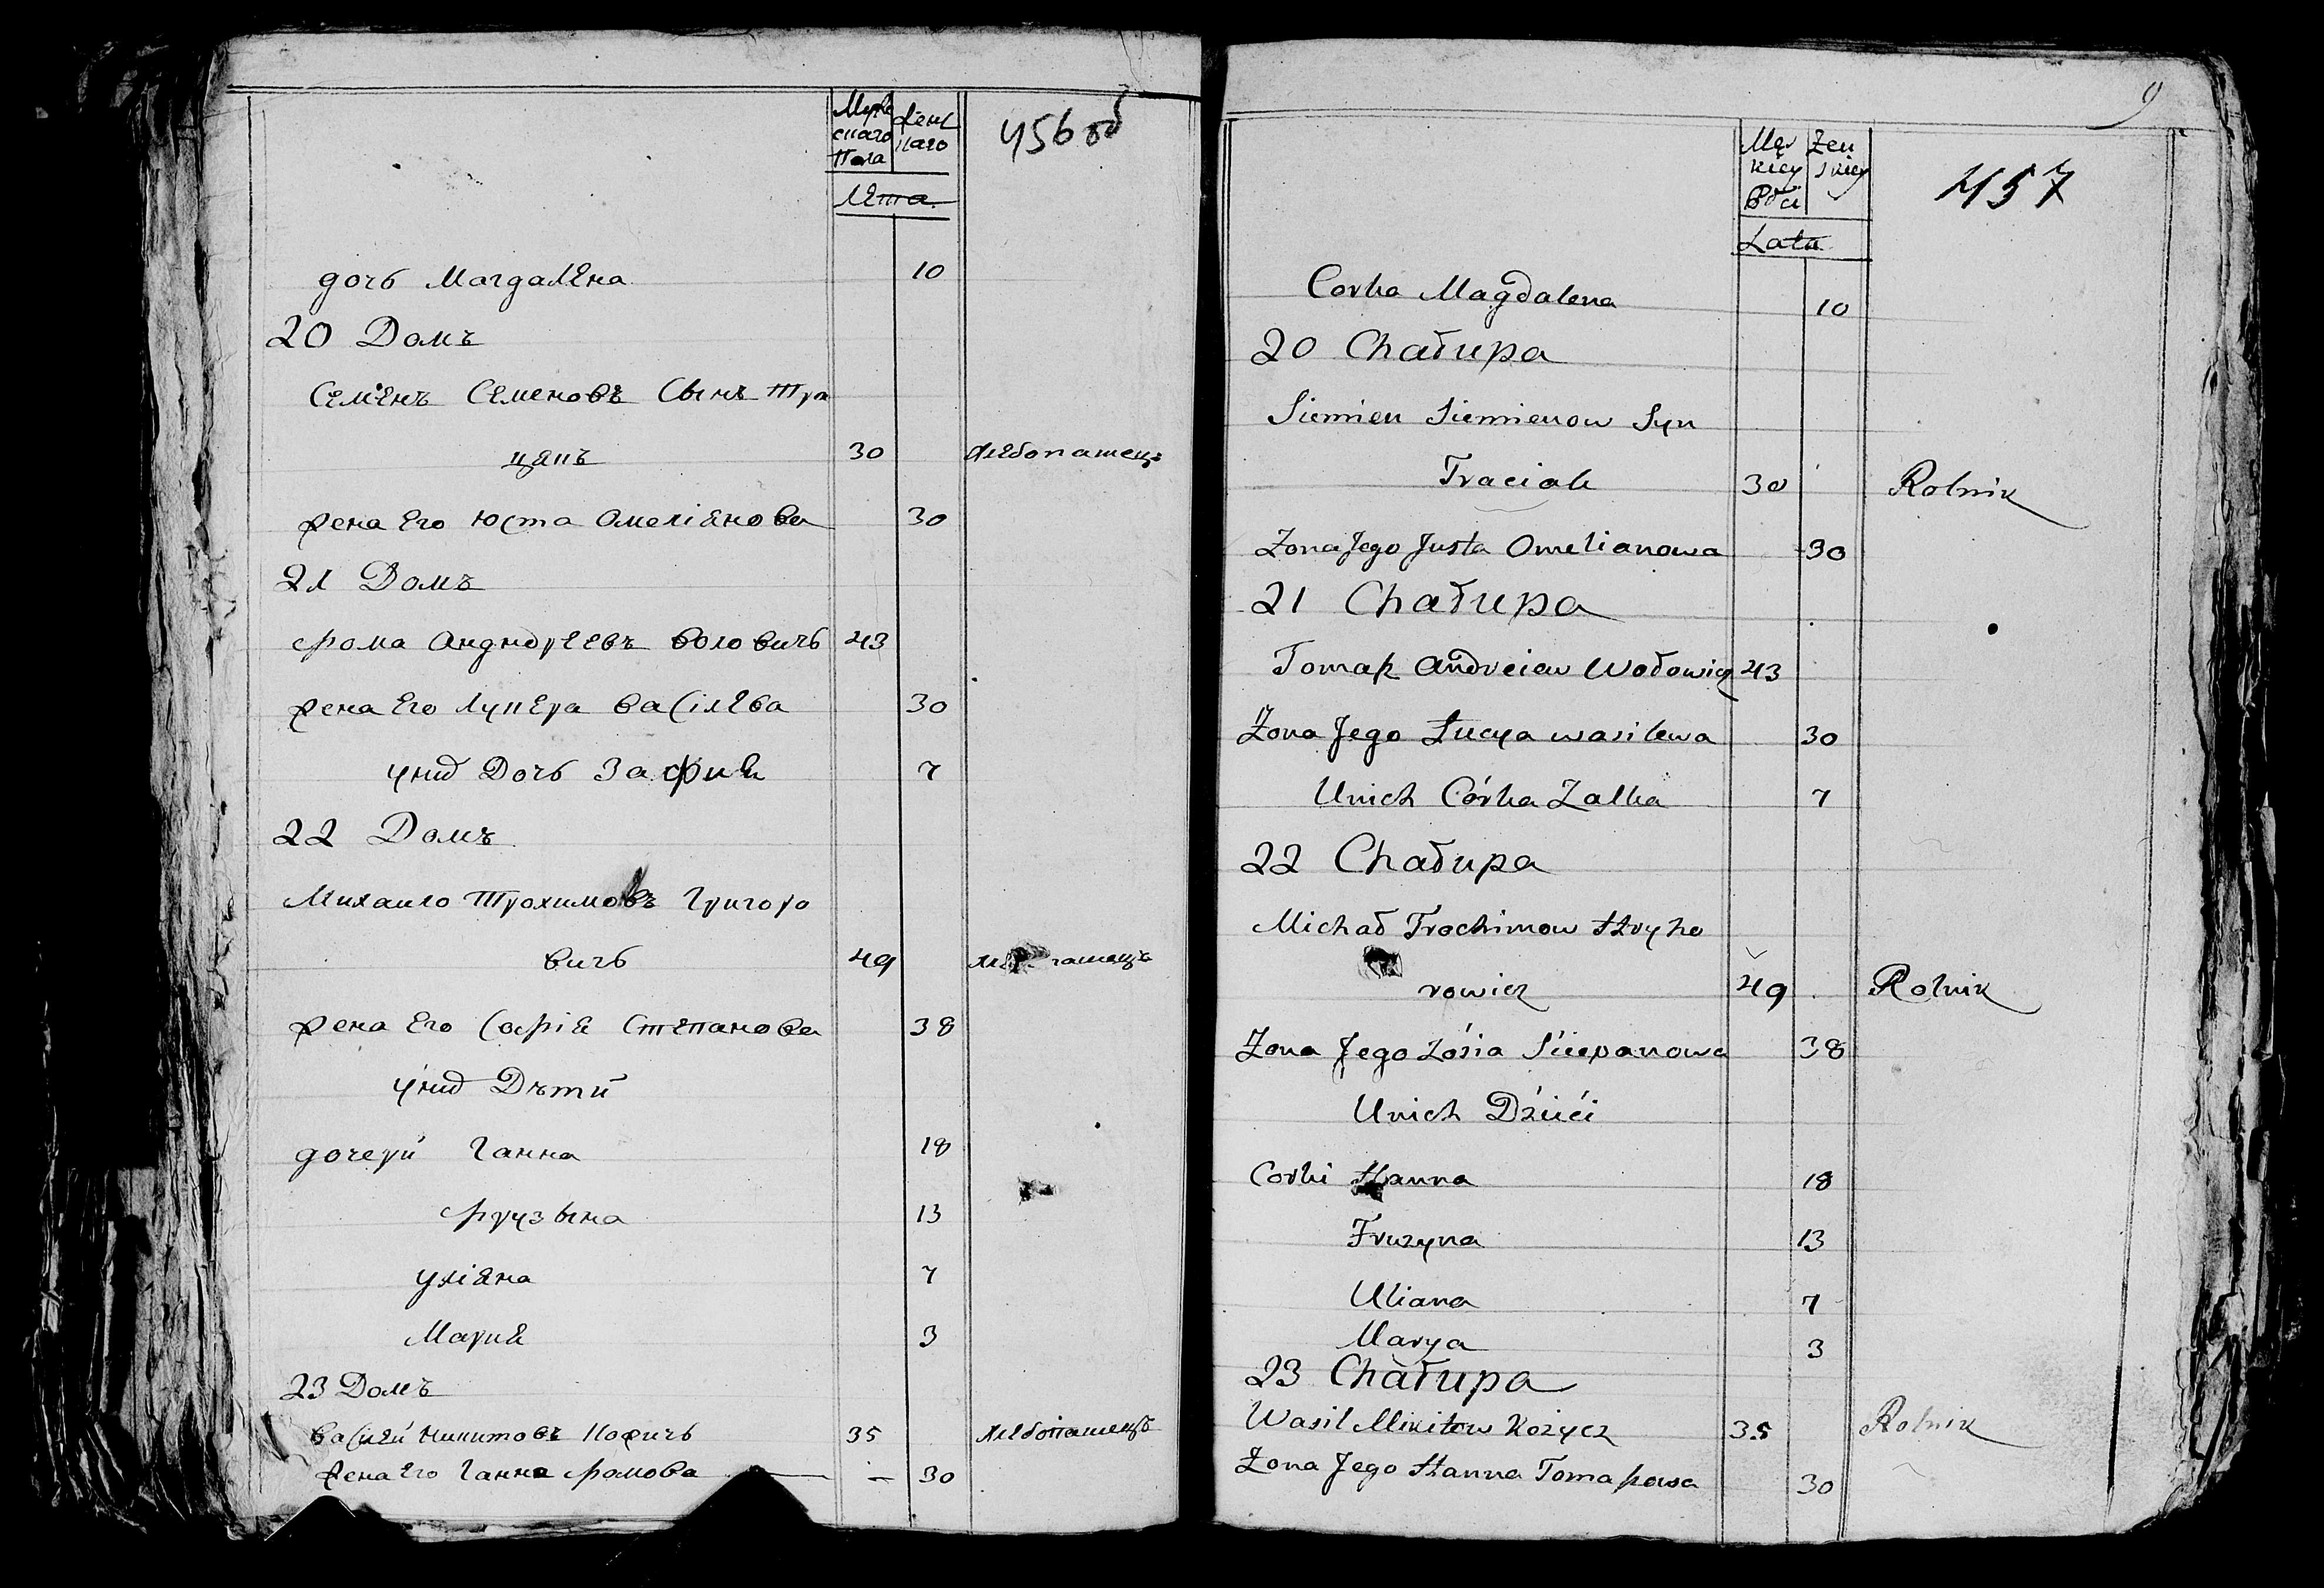 Муже Жен
скаго наго
Пола
456 об
Лета.
дочь Магдалена 10
20 Домъ
Семенъ Семеновъ Сынъ Тра
цякъ 30 хлебопашецъ
жена Его Юста Омелiянова 30
21 Домъ
Фома Андндреевъ Воловичъ 43
жена Его Луцера Васiлева 30
унид Дочь Зафия 7
22 Домъ
Михаило Трохимовъ Григоро
вичъ 49
жена Его Софiя Степанова 38
унид Дъти
дочери Ганна 18
Фрузына 13
Улiяна 7
Мария 3
23 Домъ
Василей Никитовъ Кожичъ 35 хлебопашецъ
жена Его Ганна Фомова — 30
9
Męs Zeń
kiey skiey
Płci
457
Lata
Corka Magdalena 10
20 Chałupa
Siemien Siemienow Syn
Traciak 30 Rolnik
Zona Jego Justa Omelianowa 30
21 Chałupa
Tomasz Andreiew Wołowicz 43
Zona Jego Łucya wasilewa 30
Unich Córka Zalka 7
22 Chałupa
Michał Trochimow Hryho
rowicz 49 Rolnik
Zona Jego Zósia Sciepanowa 38
Unich Dzieići
Corki Hanna 18
Fruzyna 13
Uliana 7
Marya 3
23 Chałupa
Wasil Mikitow Kożycz 35 Rolnik
Zona Jego Hanna Tomaszowa 30